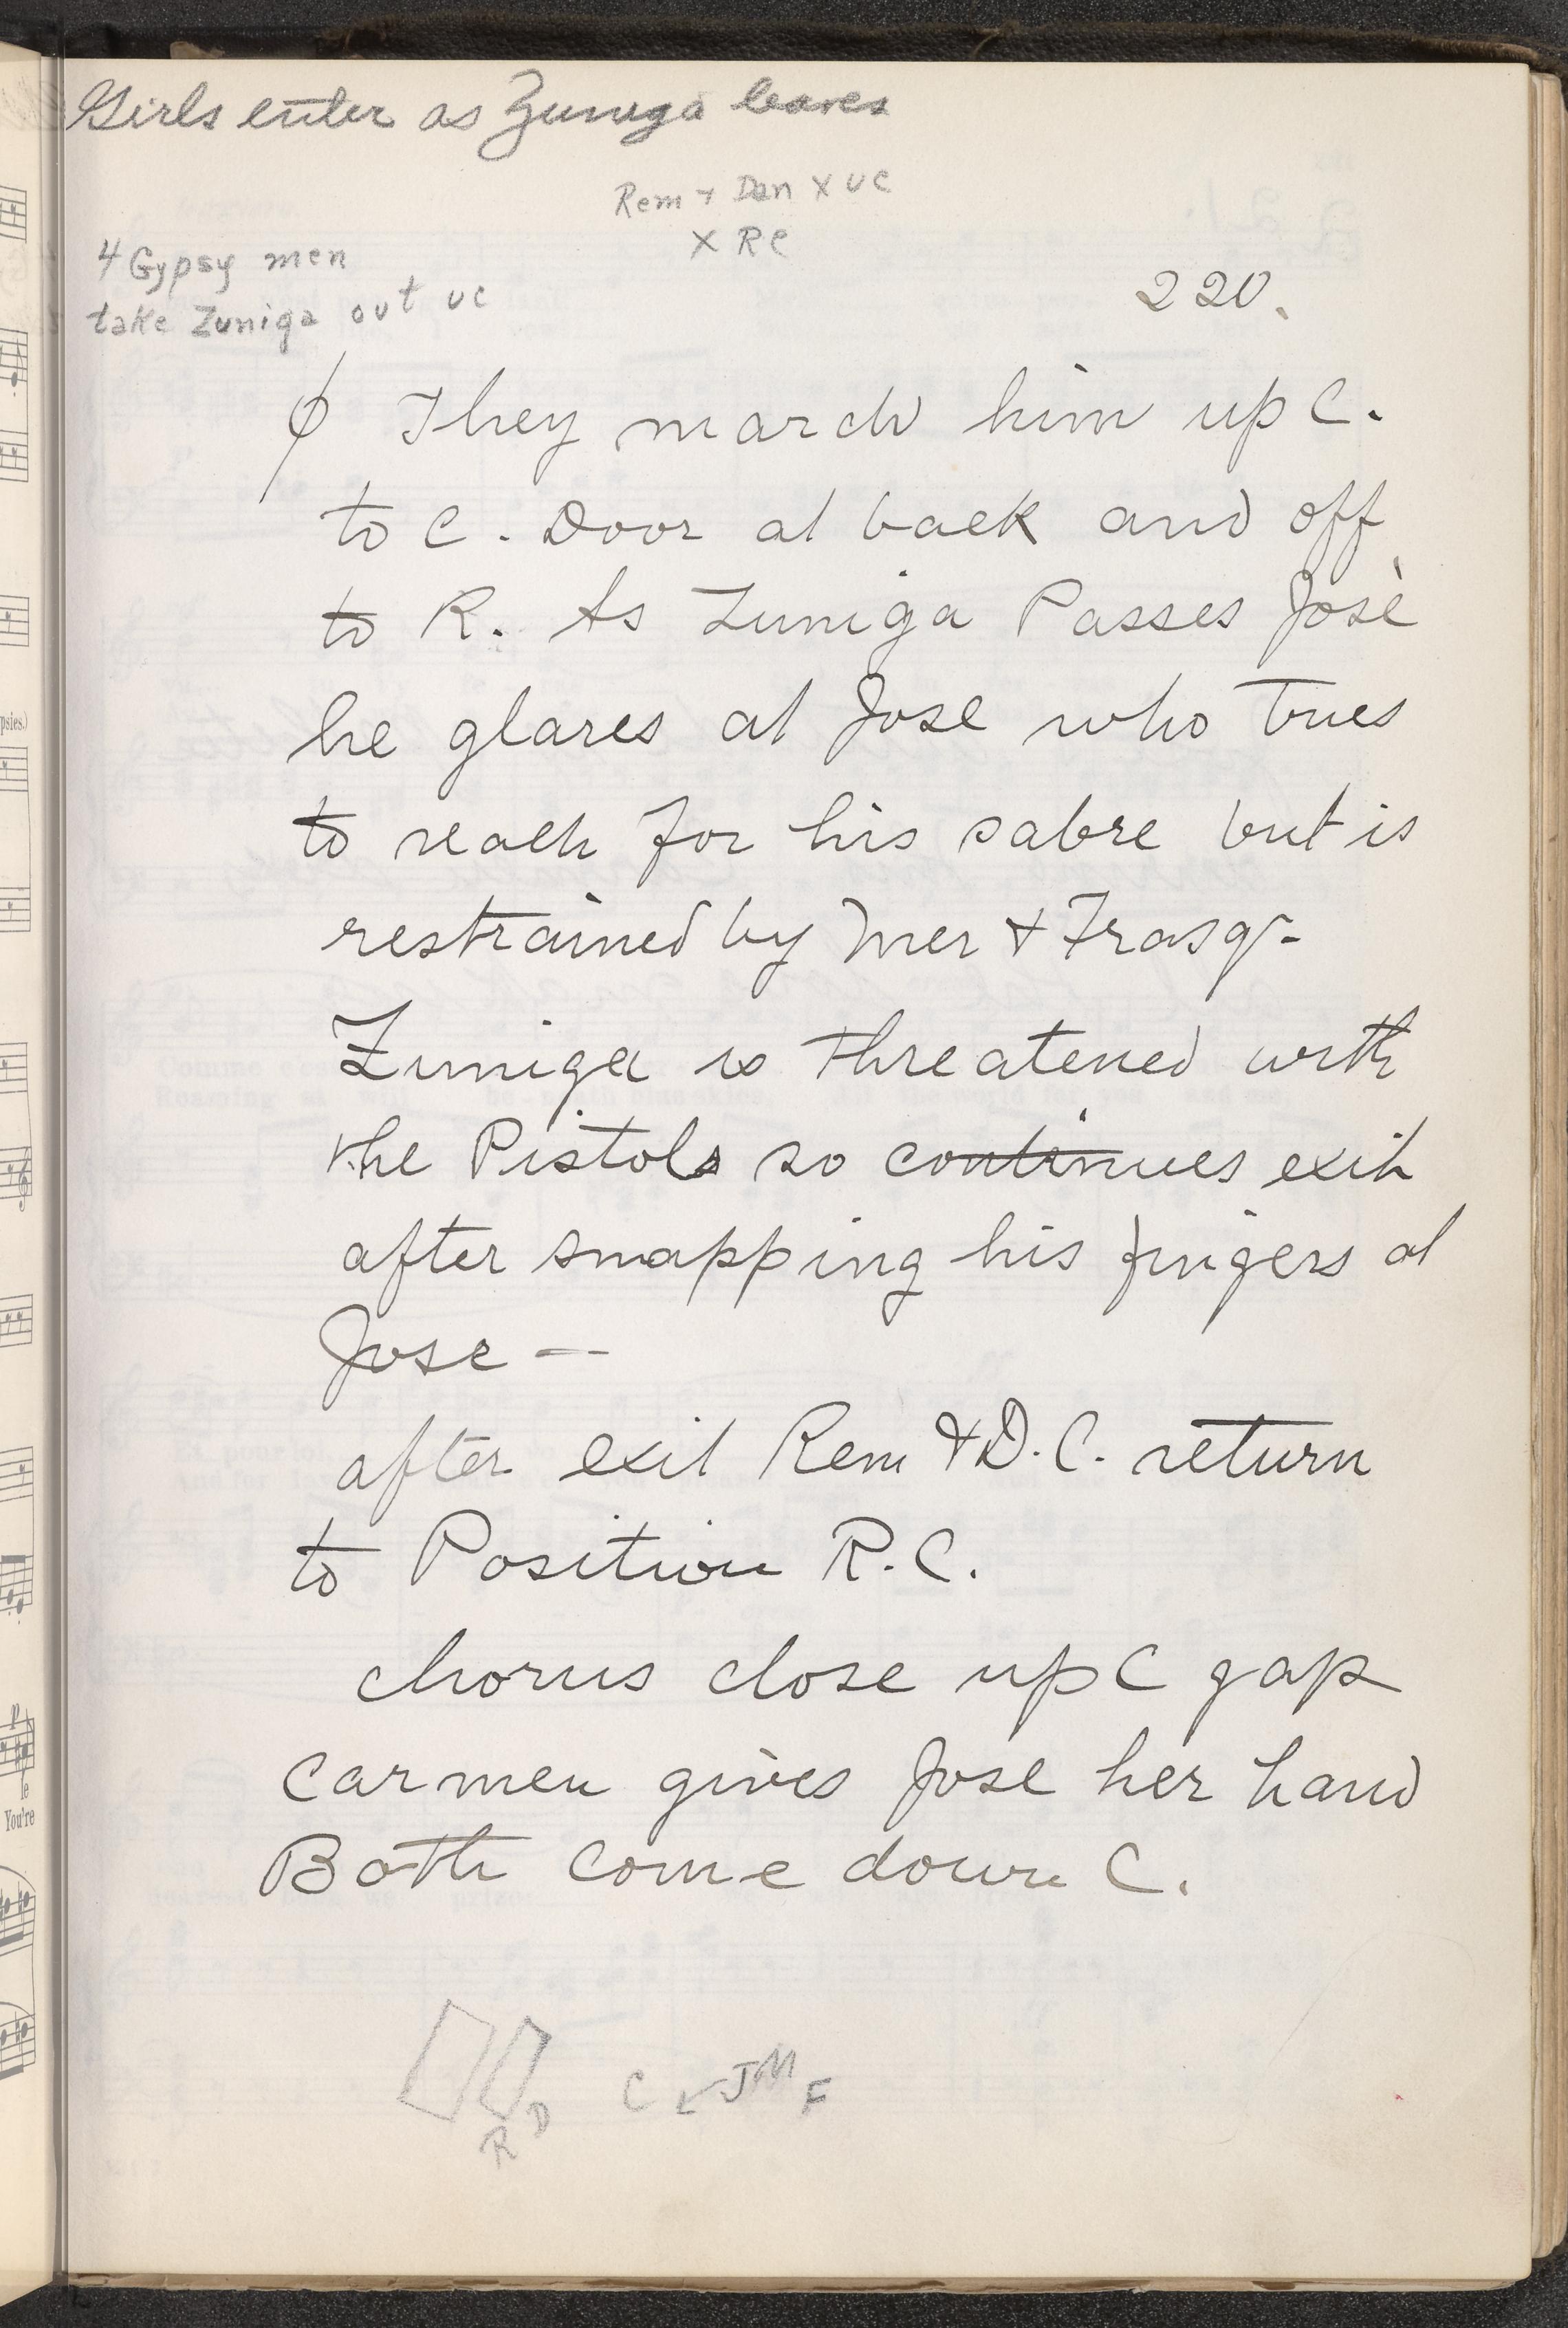 Girls enter as Zuniga leaves
Rem + Dan X UC
X RC
4 Gypsy men
take Zuniga out UC
220.
ϕ They march him up C.
to C. Door at back and off
to R. As Zuniga Passes José
he glares at Jose who tries
to reach for his sabre but is
restrained by Mer & Frasq-
Zuniga is threatened with
the Pistols so continues exit
after snapping his fingers at
Jose —
after exit Rem & D.C. return
to Position R.C.
chorus close up C gap
Carmen gives Jose her hand
Both come down C.
C ↙ J M F
R D
psies.)
le
You're